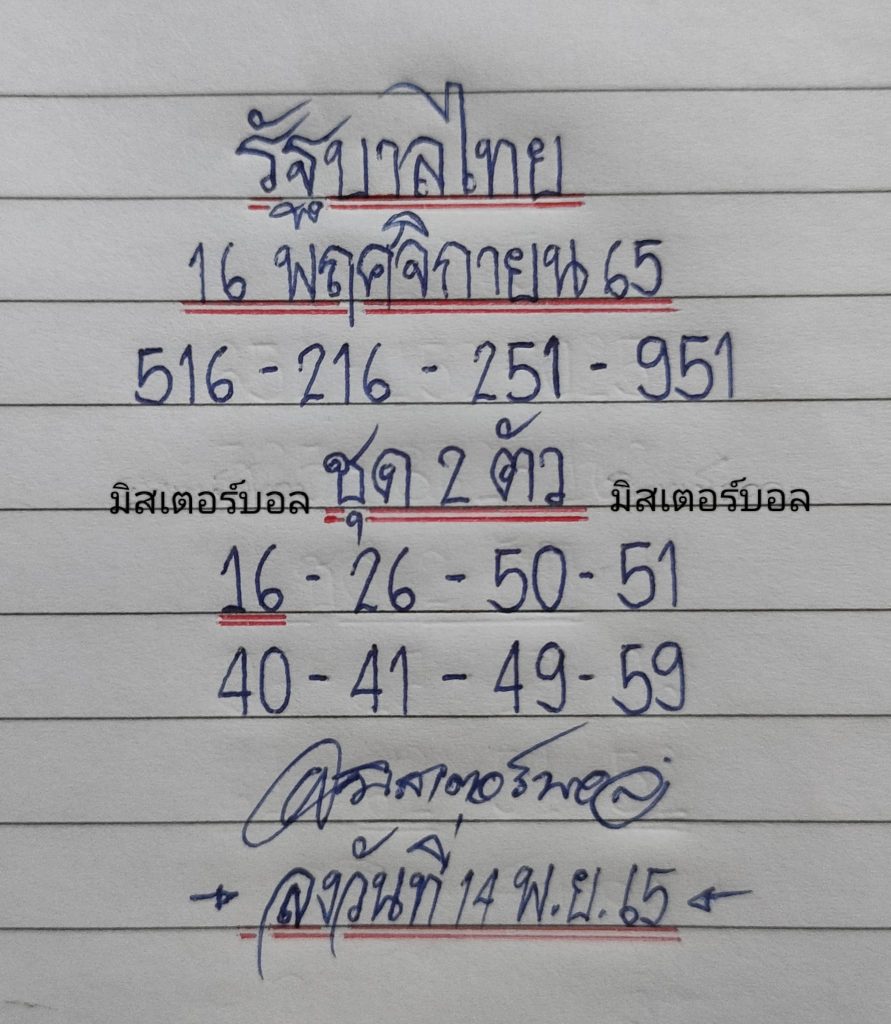 รัฐบาลไทย
16 พฤศจิกายน 65
516 - 216 - 251 - 951
มิสเตอร์บอล ชุด 2 ตัว มิสเตอร์บอล
16 - 26 - 50 - 51
40 - 41 - 49 - 59
มิสเตอร์บอล
→ ลงวันที่ 14 พ.ย. 65 ←